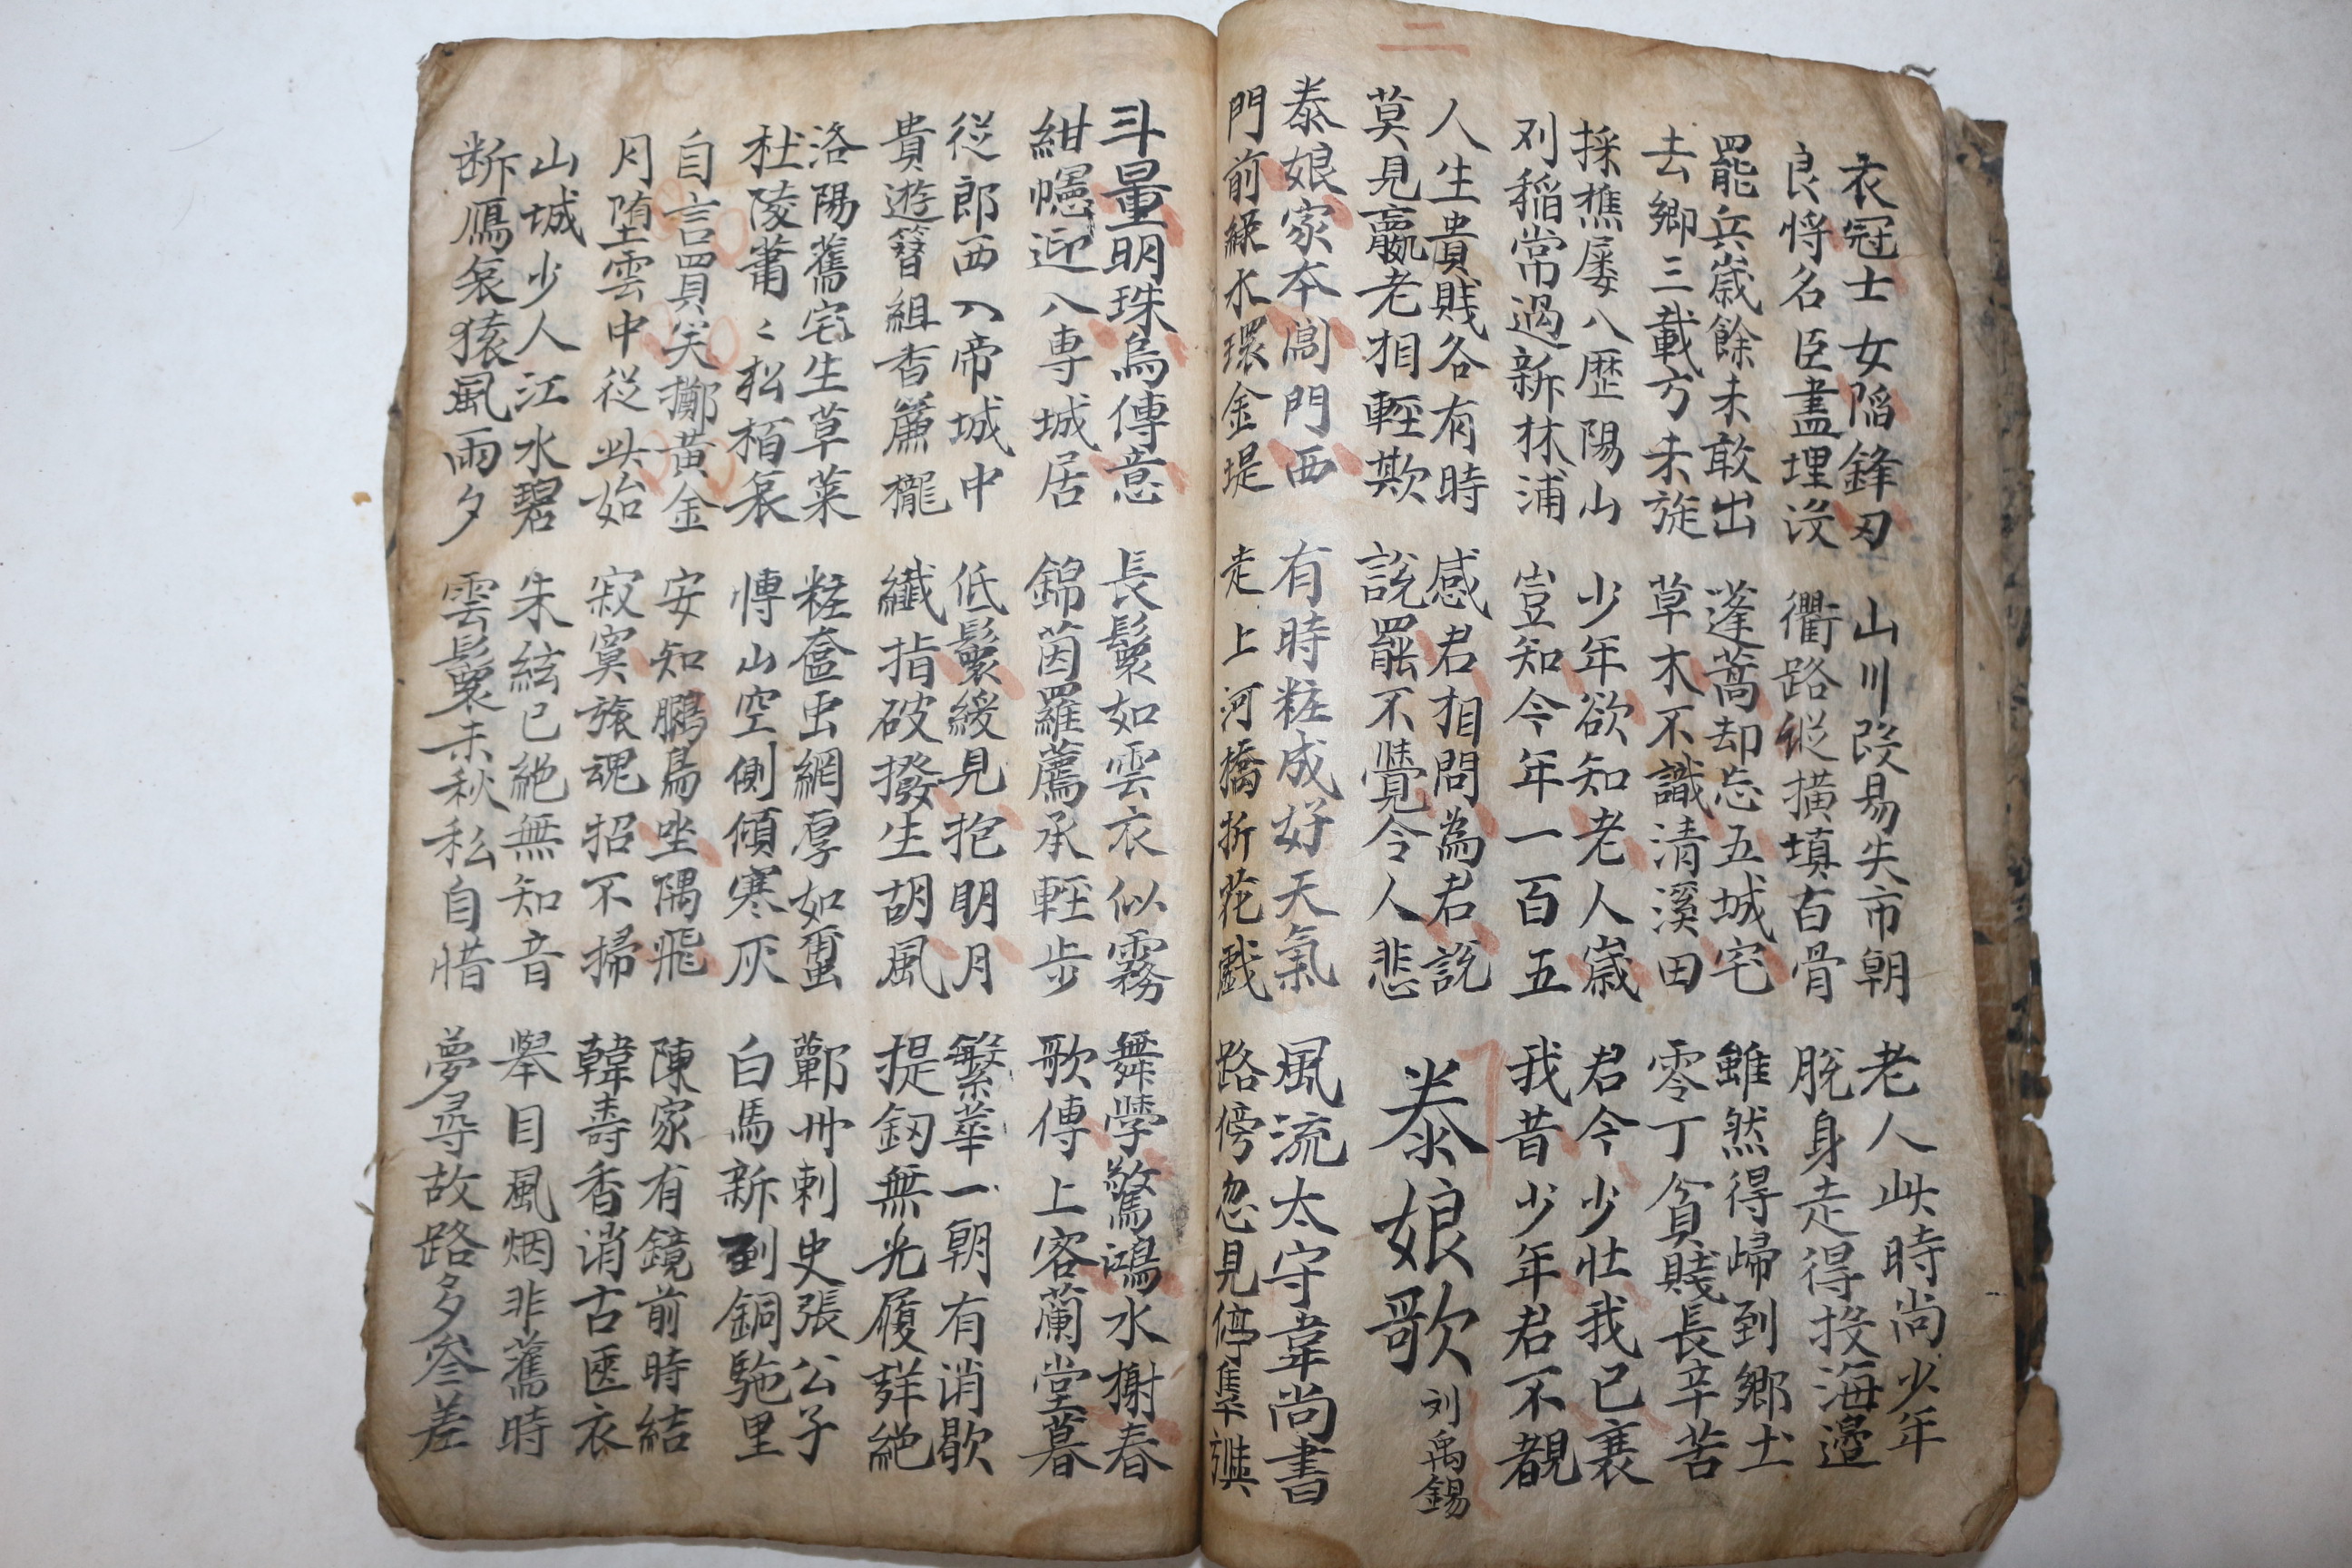 衣冠士女陷鋒刃
良將名臣盡埋沒
山川改易失市朝
衢路縱橫填百骨
老人此時尚少年
脫身走得投海邊
罷兵歲餘未敢出
去鄉三載方未旋
蓬蒿却忘五城宅
草木不識清溪田
雖然得歸到鄉土
零丁貧賤長辛苦
採樵屢入歷陽山
刈稻常過新林浦
少年欲知老人歲
豈知今年一百五
君今少壯我已衰
我昔少年君不覩
人生貴賤各有時
莫見羸老相輕欺
感君相問為君說
說罷不覺令人悲
泰娘歌
刘禹錫
泰娘家本閶門西
門前綠水環金堤
有時粧成好天氣
走上河橋折花戲
風流太守韋尚書
路傍忽見停隼旟
斗量明珠鳥傳意
紺幰迎入專城居
長鬟如雲衣似霧
錦茵羅薦承輕步
舞學驚鴻水榭春
歌傳上客蘭堂暮
從郎西入帝城中
貴遊簪組香簾櫳
低鬟緩見抱明月
纖指破撥生胡風
繁華一朝有消歇
提釼無光履聲絕
洛陽舊宅生草菜
杜陵蕭〻松栢哀
粧奩虫網厚如蠒
博山空側傾寒灰
鄿州刺史張公子
白馬新到銅駞里
自言買笑擲黃金
月墮雲中從此始
安知鵬鳥坐隅飛
寂寞旅魂招不掃
陳家有鏡前時結
韓壽香消古匧衣
山城少人江水碧
斷鴈哀猿風雨夕
朱絃已絕無知音
雲鬟未秋私自惜
舉目風烟非舊時
夢尋故路多參差
二